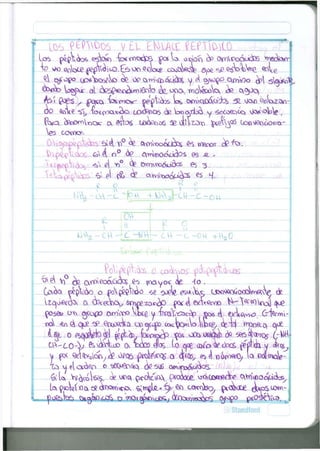 LOS PÉPTIDOS Y EL ENLACE PEPTÍDICO
Los péptidos están formados por la unión de aminoácidos mediante
un enlace peptídico. Es un enlace covalente que se establece entre
el grupo carboxilo de un aminoácido y el grupo amino del siguiente,
dando lugar al desprendimiento de una molécula de agua.
Así pues, para formar péptidos los aminoácidos se van enlazan-
do entre sí, formando cadenas de longitud y secuencia variable.
Para denominar a estas cadenas se utilizan prefijos convenciona-
les como:
Oligopéptidos: si el nº de aminoácidos es menor de 10.
Dipéptidos: si el nº de aminoácidos es 2.
Tripéptidos: si el nº de aminoácidos es 3.
Tetrapéptidos: si el nº de aminoácidos es 4.
Polipéptidos o cadenas polipeptídicas
Si el nº de aminoácidos es mayor de 10.
Cada péptido o polipéptido se suele escribir, convencionalmente de
izquierda a derecha, empezando por el extremo N-Terminal que
posee un grupo amino libre y finalizando por el extremo C-termi-
nal en el que se encuentra un grupo carboxilo libre, de tal manera que
el eje o esqueleto del péptido, formado por una unidad de seis átomos (-NH-
CH-CO-), es idéntico a todos ellos. Lo que varía de unos péptidos a otros,
y por extensión, de unas proteínas a otras, es el número, la naturale-
za y el orden o secuencia de sus aminoácidos.
Si la hidrólisis de una proteína produce únicamente aminoácidos,
la proteína se denomina simple. Si, en cambio, produce otros com-
puestos orgánicos o inorgánicos, denominados grupo prostético,
Standford